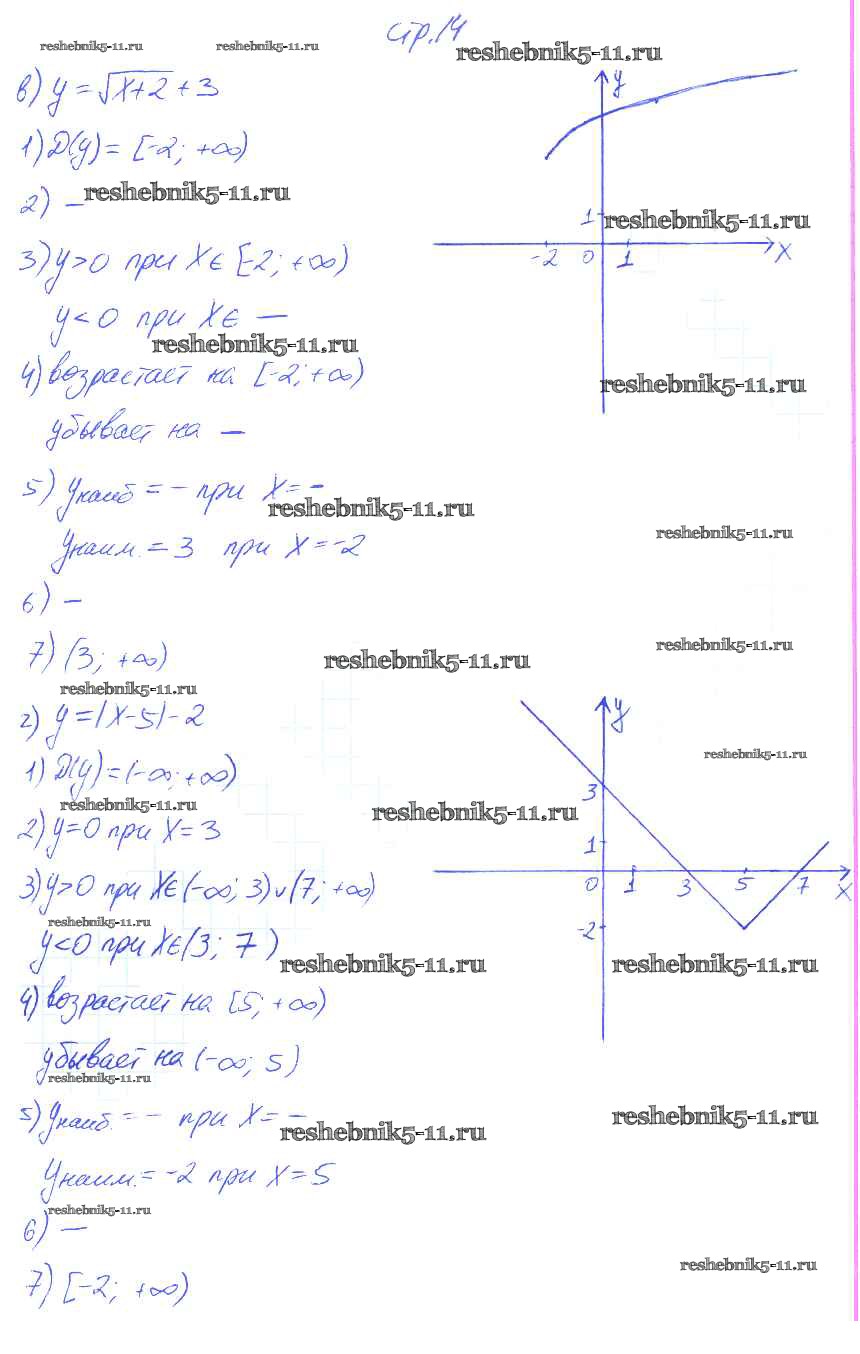 стр.14
reshebnik5-11.ru reshebnik5-11.ru reshebnik5-11.ru
в) y = √x+2 + 3
1) D(y) = [-2; +∞)
2) –
reshebnik5-11.ru
3) y>0 при x∈ [-2; +∞)
y<0 при x∈ –
reshebnik5-11.ru
4) возрастает на [-2; +∞)
убывает на –
5) yнаиб = – при x = –
reshebnik5-11.ru
yнаим. = 3 при x = -2
6) –
7) (3; +∞)
reshebnik5-11.ru
y
1
reshebnik5-11.ru
-2 0 1 x
reshebnik5-11.ru
reshebnik5-11.ru
reshebnik5-11.ru
reshebnik5-11.ru
г) y = |x-5| - 2
1) D(y) = (-∞; +∞)
reshebnik5-11.ru
2) y=0 при x = 3
3) y>0 при x∈ (-∞; 3)∪(7; +∞)
reshebnik5-11.ru
y<0 при x∈(3; 7)
reshebnik5-11.ru
4) возрастает на [5; +∞)
убывает на (-∞; 5)
reshebnik5-11.ru
5) yнаиб. = – при x = –
reshebnik5-11.ru
yнаим. = -2 при x = 5
reshebnik5-11.ru
6) –
7) [-2; +∞)
y
reshebnik5-11.ru
3
reshebnik5-11.ru
1
0 1 3 5 7 x
-2
reshebnik5-11.ru
reshebnik5-11.ru
reshebnik5-11.ru